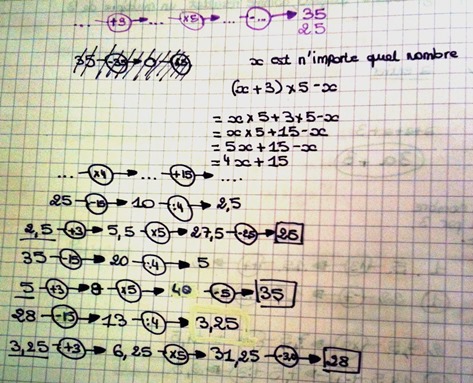 ... +3 → ... ×5 → ... -... → 35
25
35 -35 → 0
x est n'importe quel nombre
(x+3)×5-x
= x×5+3×5-x
= x×5+15-x
= 5x+15-x
= 4x+15
... ×4 → ... +15 → ....
25 -15 → 10 :4 → 2,5
2,5 +3 → 5,5 ×5 → 27,5 → 25
35 -15 → 20 :4 → 5
5 +3 → 8 ×5 → 40 -5 → 35
28 -15 → 13 :4 → 3,25
3,25 +3 → 6,25 ×5 → 31,25 → 28